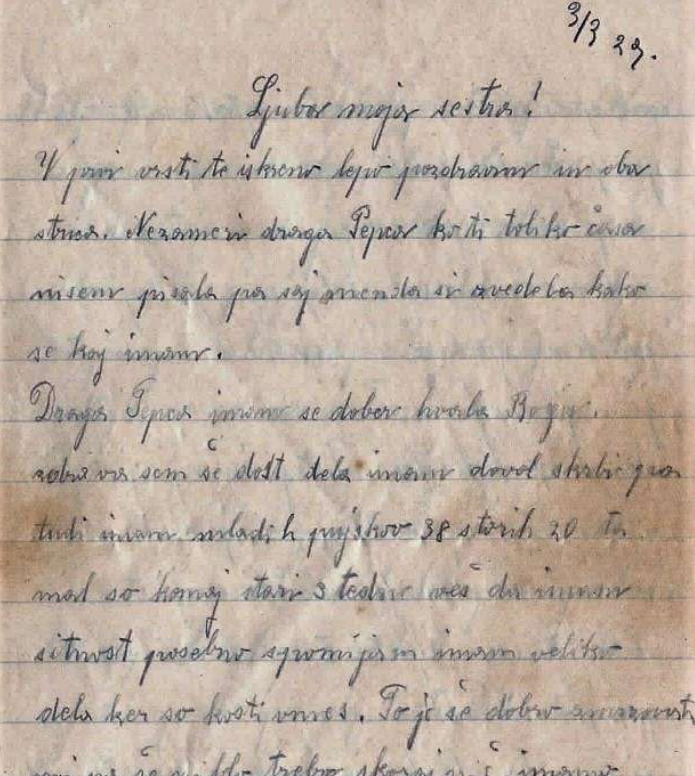 3/3 29.
Ljuba moja sestra!
V prvi vrsti te iskreno lepo pozdravim in oba
strica. Nezameri draga Pepca ko ti toliko časa
nisem pisala pa saj menda si zvedela kako
se kaj imam.
Draga Pepca imam se dobro hvala Bogu.
zdrava sem še dost dela imam dovol skrbi pa
tudi imam mladih pujskov 38 starih 20 ta
mal so komaj stari 3 tedne veš da imam
sitnost posebno s imam veliko
dela ker so kosti vmes. To je še dobro
še trebo skoraj nič imamo